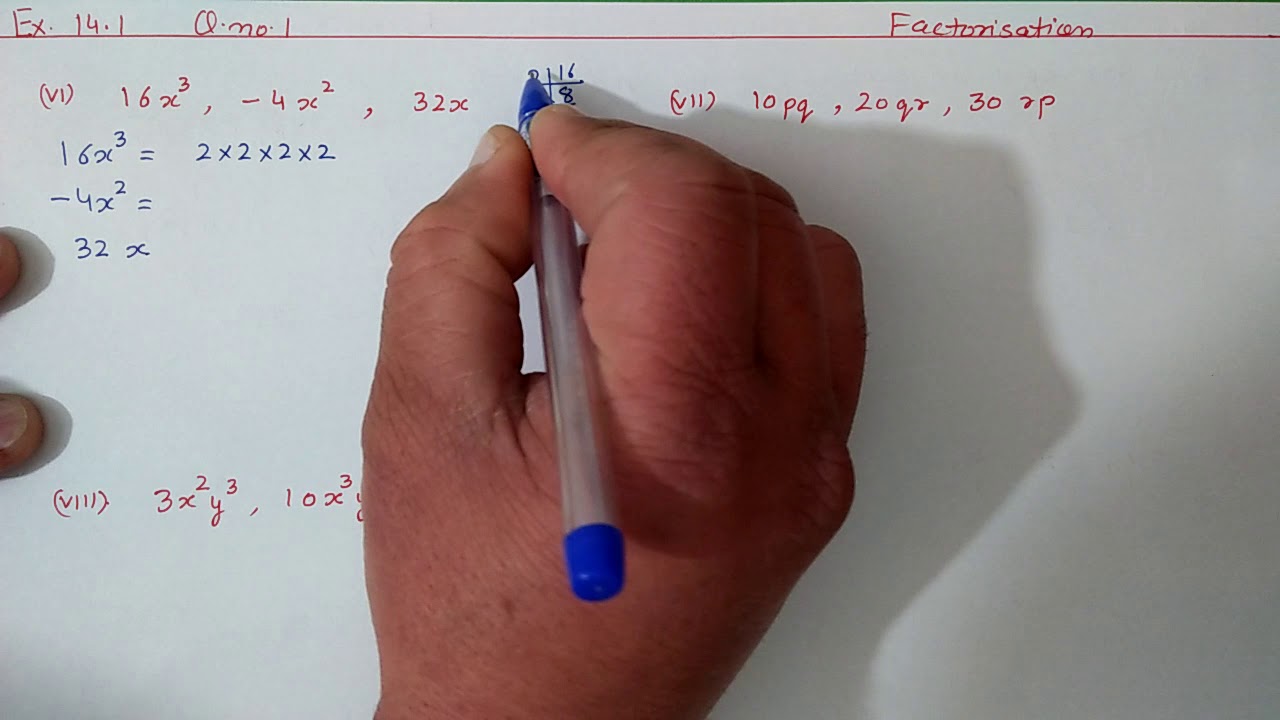 Ex. 14.1 Q.no.1 Factorisation
(VI) 16x³, -4x², 32x
16
8
(VII) 10pq, 20qr, 30 rp
16x³ = 2×2×2×2
-4x² =
32 x
(VIII) 3x²y³, 10x³